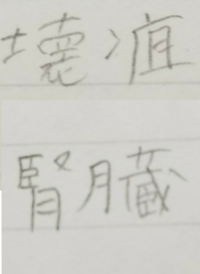 壊疽
腎臓